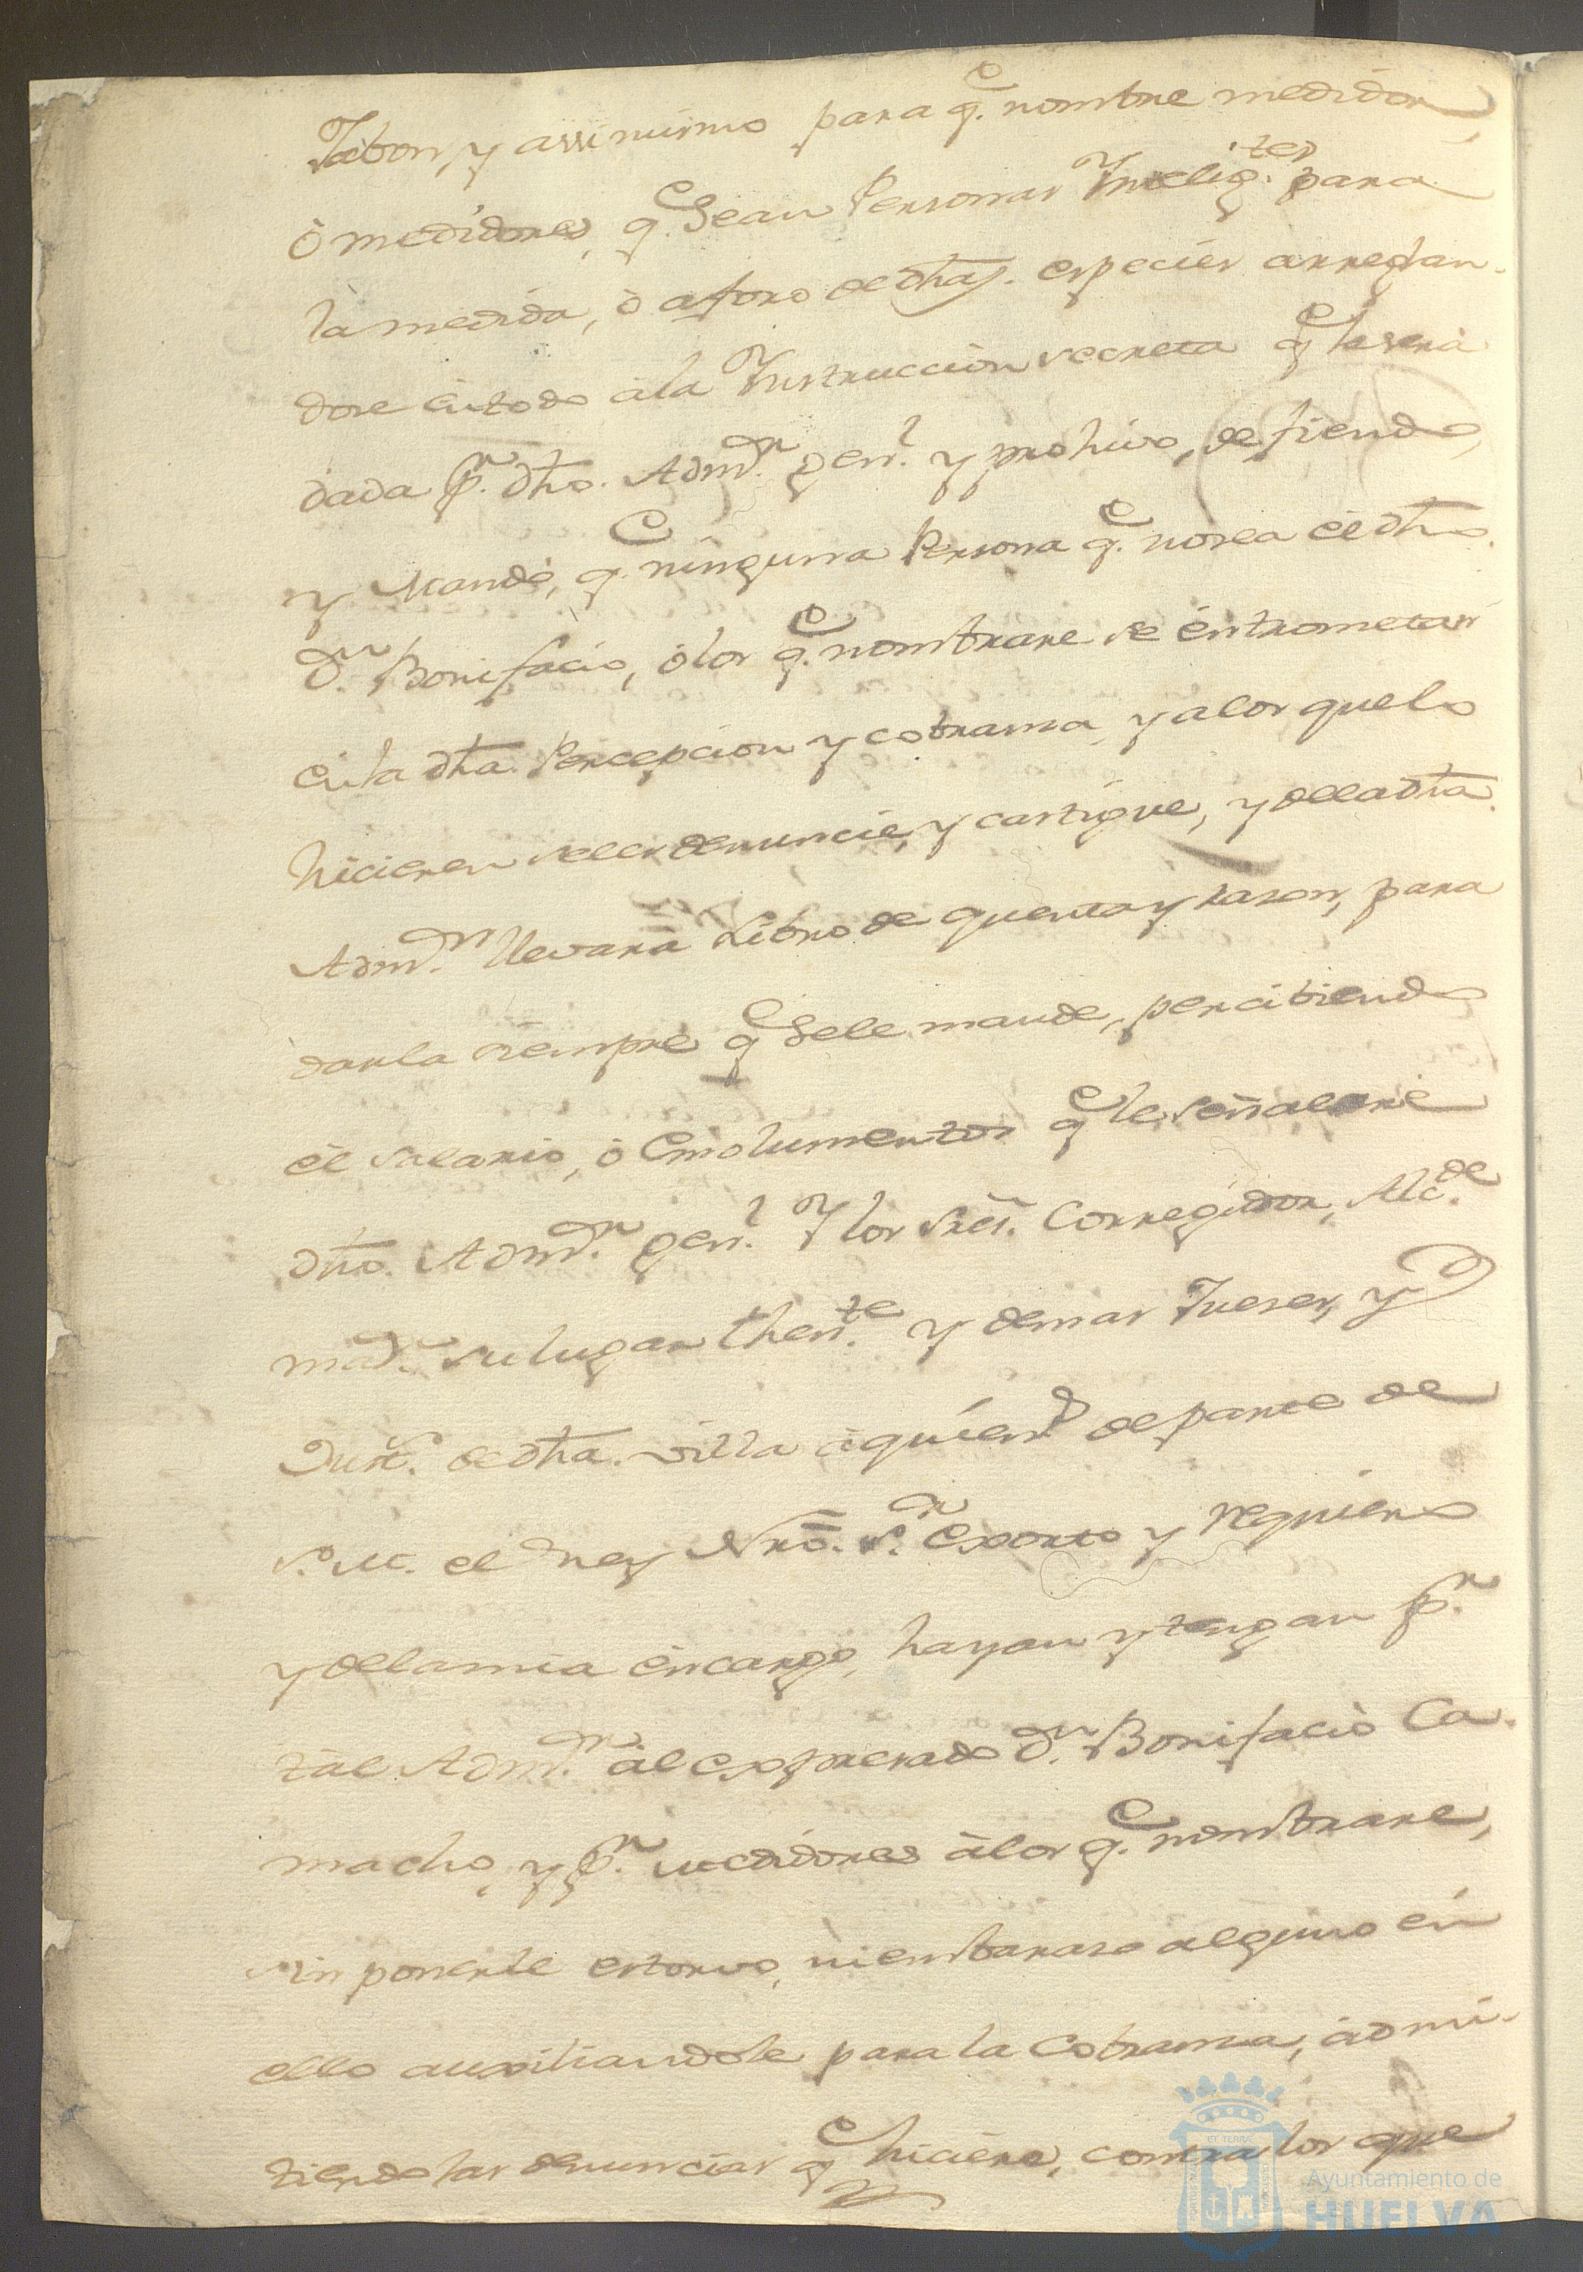 Jabon, y assimismo para q.e nombre medidor,
ò medidores, q.e Sean Personas Intelig.tes para
la medida, ò aforo de dhas. especies arreglan-
dose en todo à la Instruccion secreta q.e le serà
dada p.r dho. Adm.or gen.l y prohivo, defiendo,
y Mando, q.e ninguna Persona q.e no sea él dho.
D.n Bonifacio, ò los q.e nombrare se éntrometan
en la dha. Percepcion y cobransa, y a los que lo
hicieren se les denuncie, y castigue, y de la dha.
Adm.on llevarà Libro de quenta y rason, para
darla siempre q.e Se le mande, percibiendo
él salario, ò Emolumentos q.e le señalare
dho. Adm.or gen.l Y los Sres. Corregidor, Alc.de
mã.r su lugar then.te y demas Jueses, y
Just.s de dha. villa à quienes de parte de
S. M. el Rey Nrõ. S.r Exorto y requiero
y de la mia éncargo, hayan y tengan p.r
tal Adm.or àl expresado D.n Bonifacio Ca-
macho, y p.r medidores à los q.e nombrare,
sin ponerle estorvo, ni embaraso alguno én
ello auxiliandole para la Cobransa, àdmi-
tiendo las denuncias q.e hiciere, contra los que
Ayuntamiento de
HUELVA